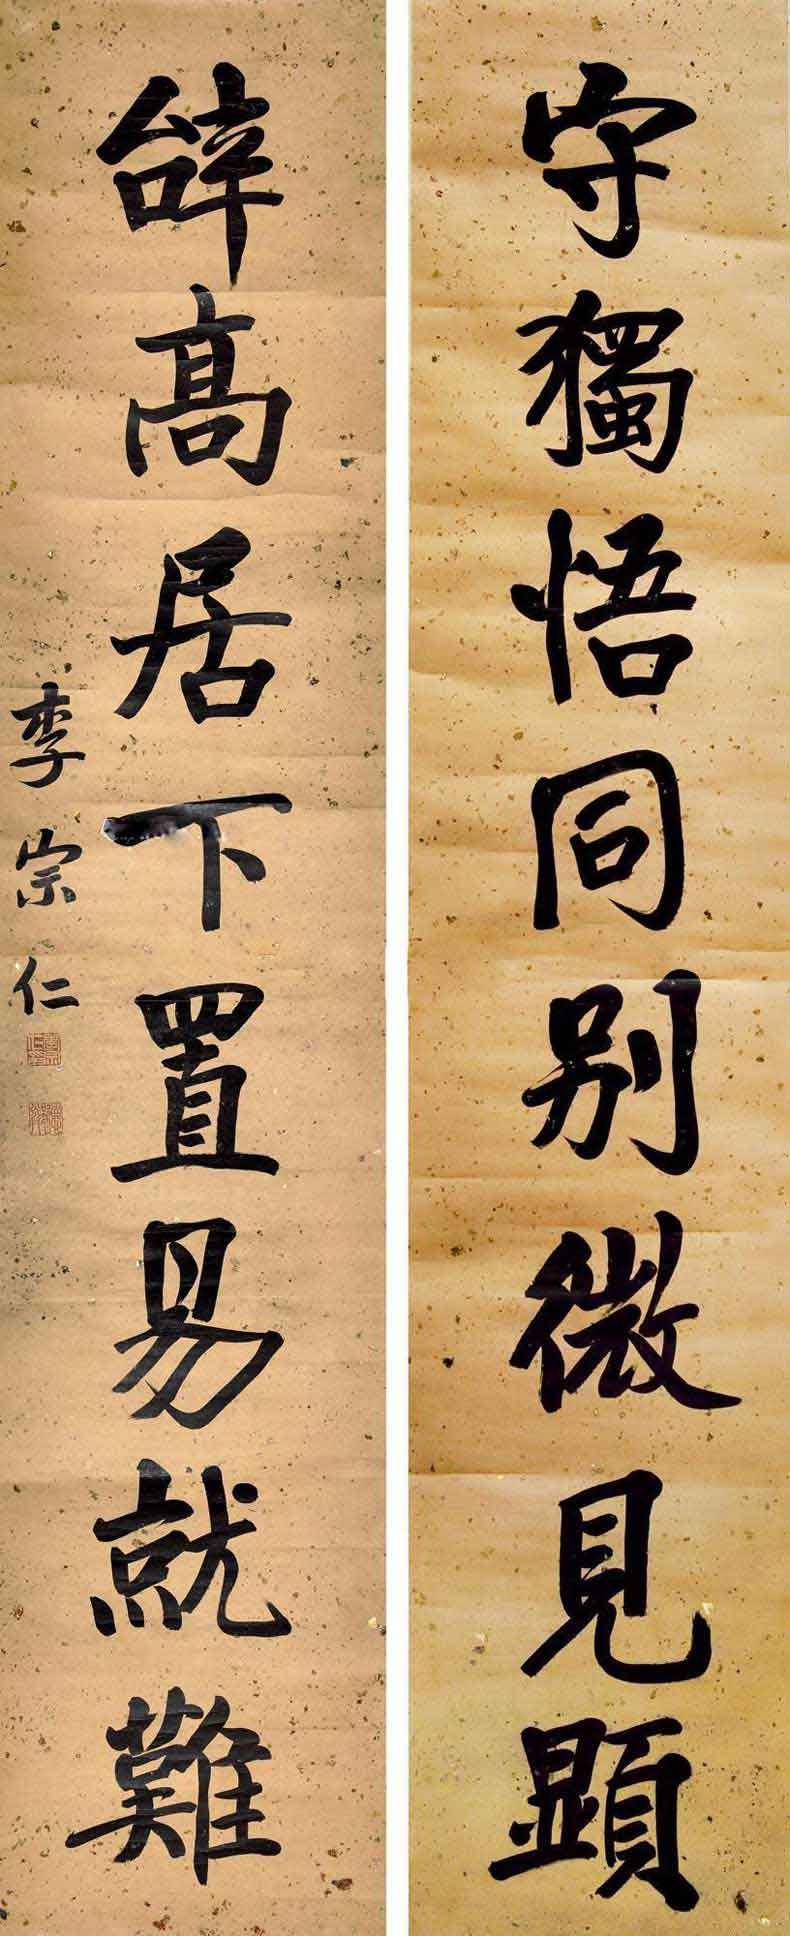 守獨悟同別微見顯
辝高居下置易就難
李宗仁